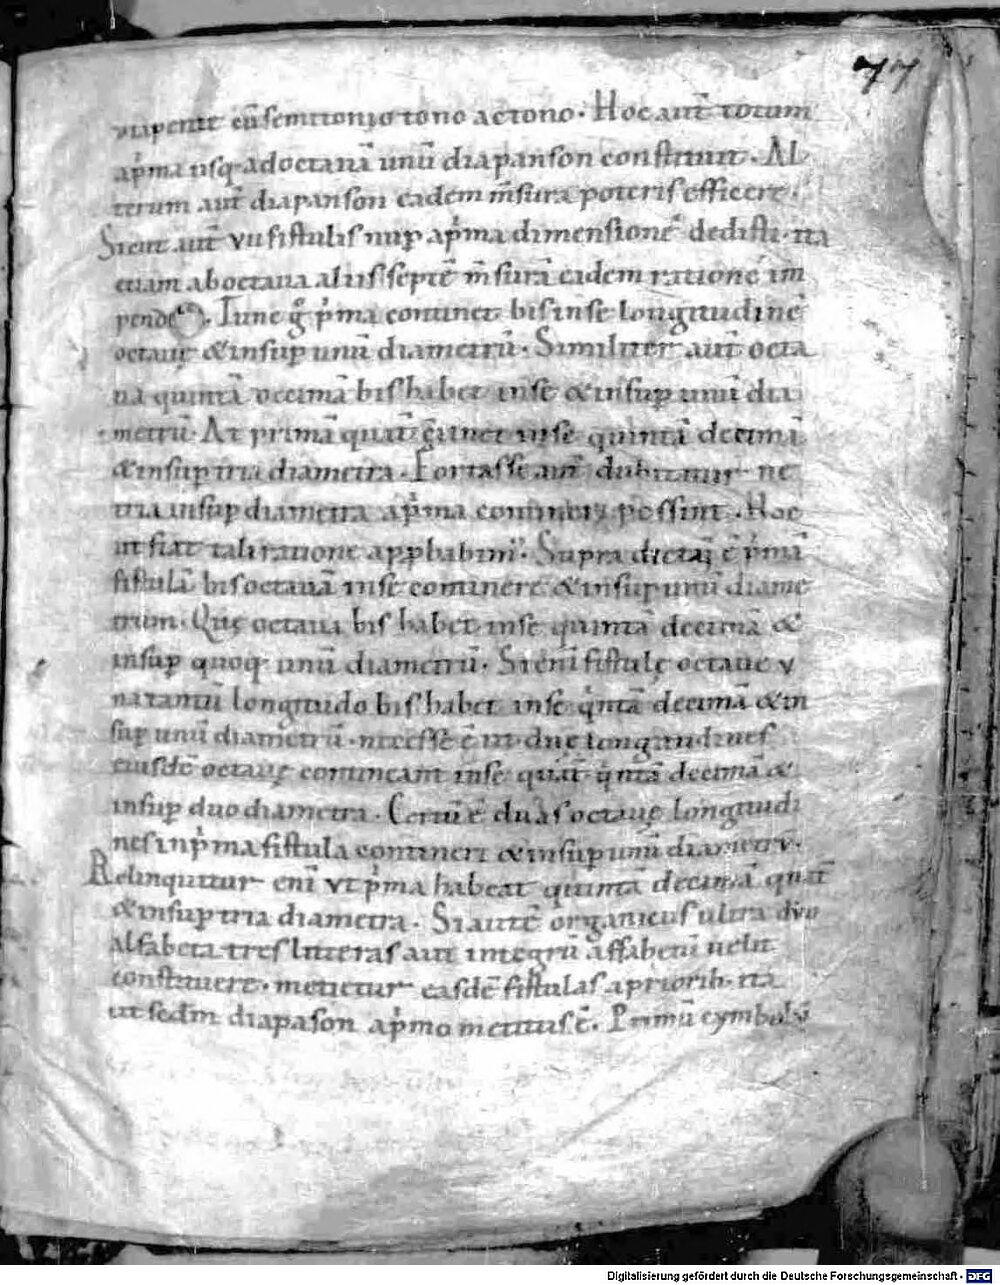 77
diapente cū semitonio tono ac tono. Hoc aut̄ totum
apͥma usq; ad octauā unū diapanson constituit. Al
terum aut̄ diapanson eadem m̄sura poteris efficere.
Sicut aut̄ vii fistulis nup̱ apͥma dimensionē dedisti. ita
etiam ab octaua aliis septē m̄surā eadem ratione im
pende. Tunc gͦ pͥma continet bis in se longitudinē
octauę & insup̱ unū diametrū. Similiter aut̄ octa
ua quintā decimā bis habet in se & insup̱ unū dia
metrū. At primā quat̄ ↄ̄tinet in se quintā decimā
& insup̱ tria diametra. Fortasse aut̄ dubitatur ne
tria insup̱ diametra apͥma contineri possint. Hoc
ut fiat tali ratione app̱babim᷒. Supra dictū ē pͥmā
fistulā bis octauā in se continere & insup̱ unū diame
trum. Quę octaua bis habet in se quintā decimā &
insup̱ quoq; unū diametrū. Si eni fistulę octauę v
na tantū longitudo bis habet in se qͥntā decimā & in
sup̱ unū diametrū. necesse ē ut duę longitudines
eiusdē octauę contineant in se quat̄ qͥntā decimā &
insup̱ duo diametra. Certū ē duas octauę longitudi
nes in pͥma fistula contineri & insup̱ unū diametrū.
Relinquitur eni vt pͥma habeat quintā decimā quat̄
& insup̱ tria diametra. Si autē organicus ultra duo
alfabeta tres litteras aut integrū affabetū uelit
constituere. metietur easdē fistulas a priorib. ita
ut sedm̄ diapason apͥmo metitus ē. Primū cymbalū
Digitalisierung gefördert durch die Deutsche Forschungsgemeinschaft - DFG